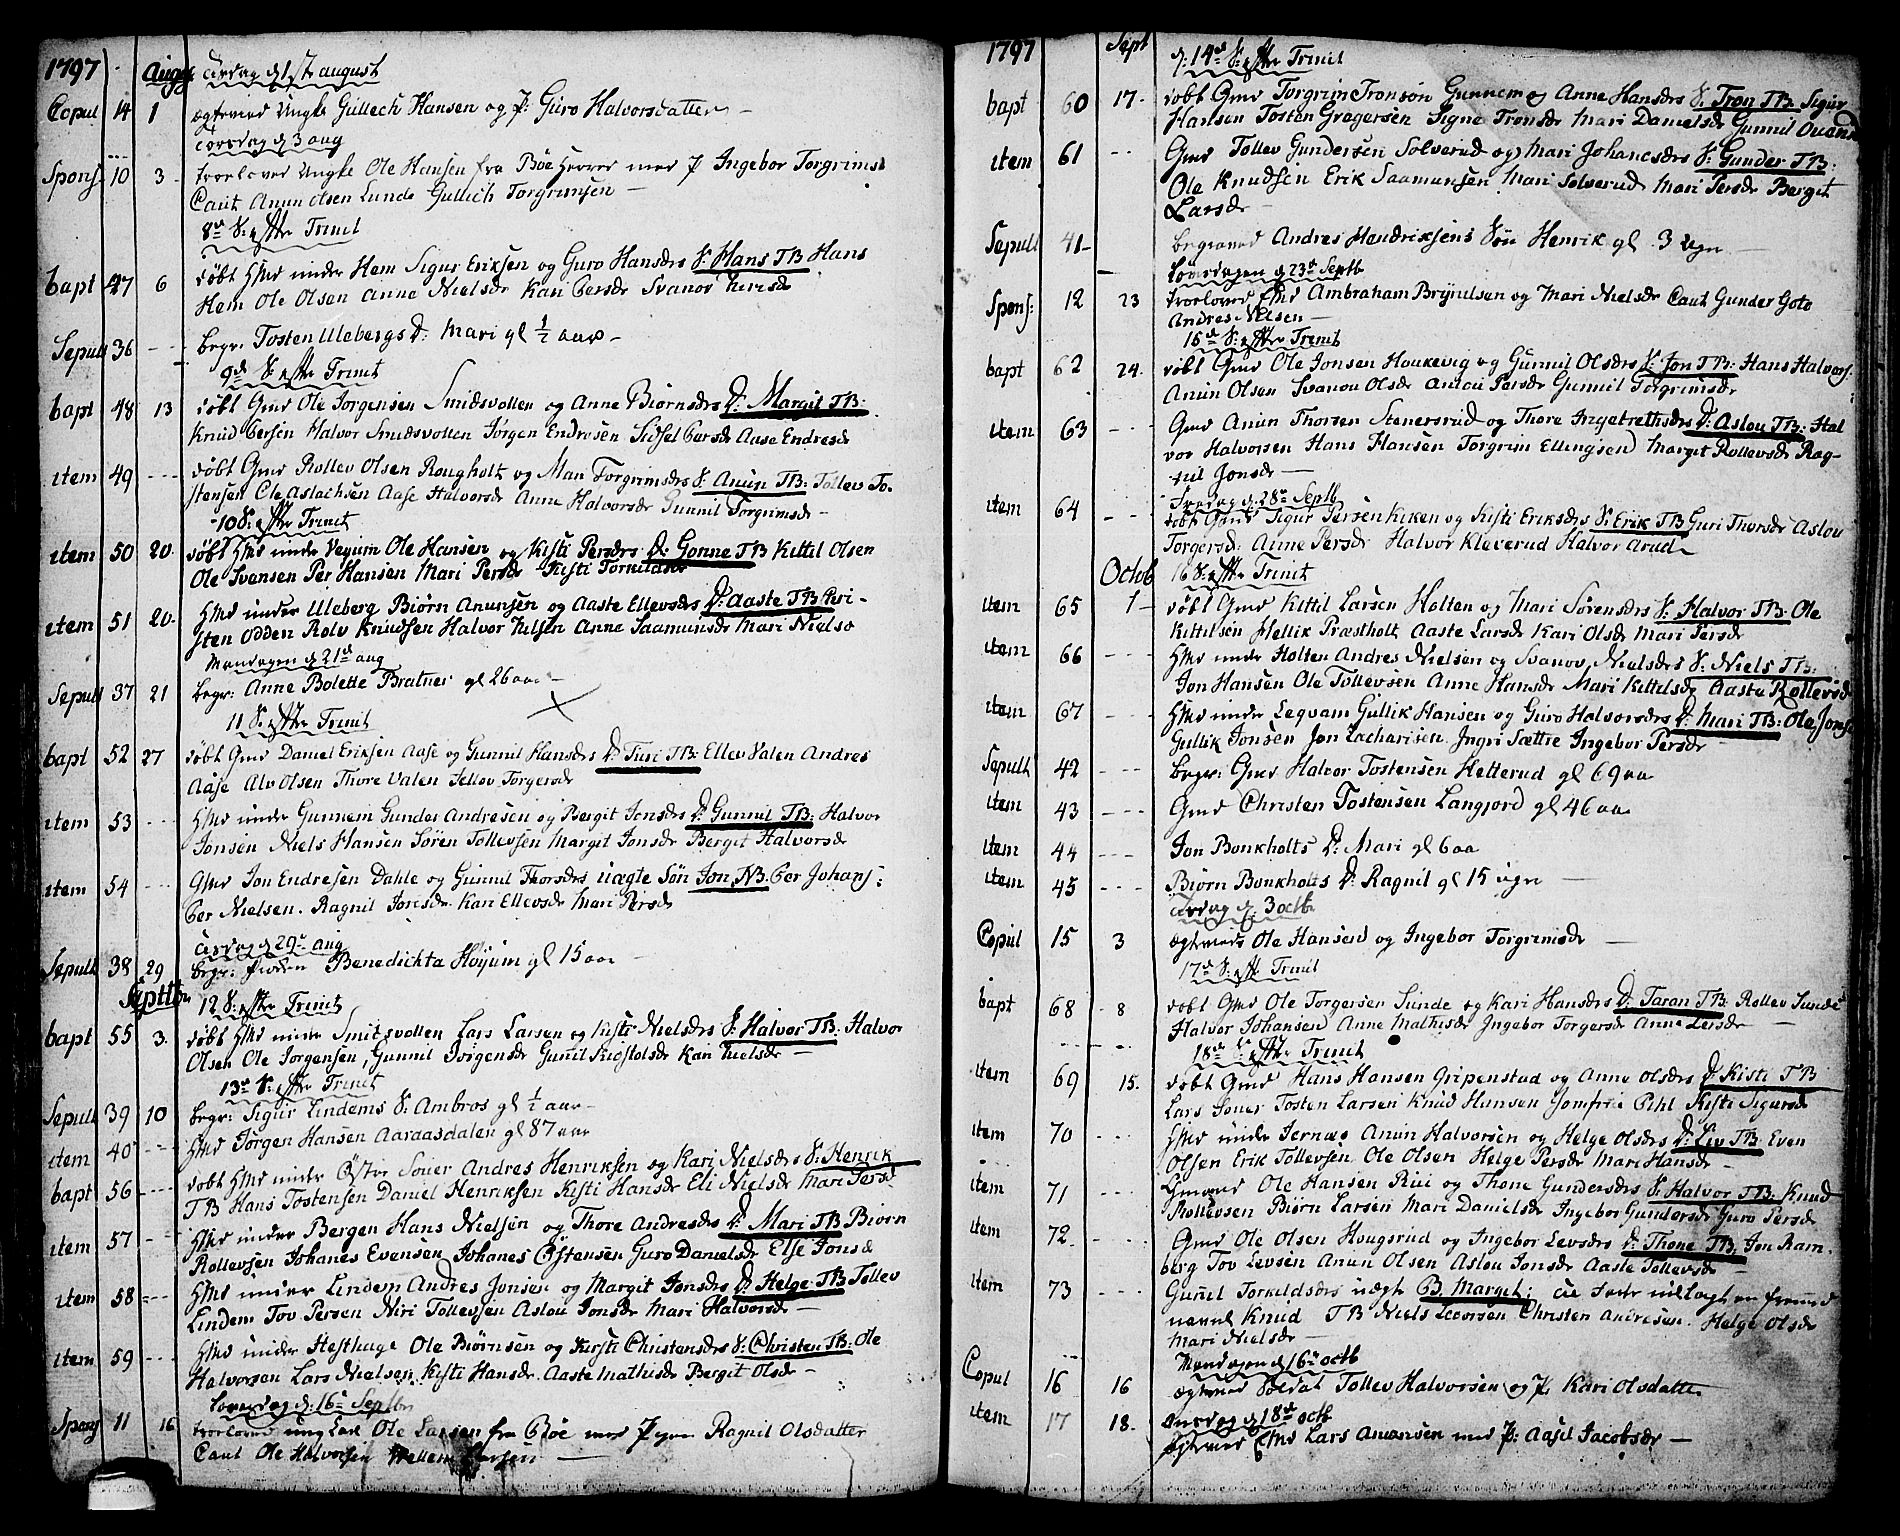 1797 Augs: tirsdag d 1ste august
Copul 14 1 ægtevied Ungk: Gullech Hansen og P: Guro Halvorsdatter —
torsdag d 3 aug
Spons 10 3 troelovet Ungk: Ole Hansen fra Bøe Herret med P Ingebor Torgrimsd
Caut Anun Olsen Lunde Gullich Torgrimsen —
8de S: efter Trinit
bapt 47 6 døbt Hmd under Hem Sigur Eriksen og Guro Hansdrs S: Hans TB Hans
Hem Ole Olsen Anne Nielsdr Kari Persdr Svanov
Sepult 36 --- begr: Tosten Ulebergs D: Mari gl ½ aar —
9de S: efter Trinit
bapt 48 13 døbt Gmd Ole Jorgensen Smidsvollen og Anne Biørnsdrs D: Margit TB:
Knud Persen Halvor Smidsvollen Jørgen Endresen Sidsel Persdr Aase Endresdr
item 49 --- døbt Gmd Rollev Olsen Rougholt og Mari Torgrimsdrs S: Anun TB: Tollev To-
stensen Ole Aslachsen Aase Halvorsdr Anne Halvorsdr Gunnil Torgrimsdr —
10 S: efter Trinit
item 50 20 døbt Hmd under Vegum Ole Hansen og Kisti Persdrs D: Gonne TB Kittil Olsen
Ole Svansen Per Hansen Mari Persdr Kisti Torkildsdr
item 51 20 Hmd under Uleberg Biørn Anunsen og Aaste Ellevsdrs D: Aaste TB Kri-
sten Odden Rolv Knudsen Halvor Nilsen Anne Saamunsdr Mari Nielsd
Mandagen d 21de aug
Sepult 37 21 begr: Anne Bolette Bratner gl 26 aar —
11 S: efter Trinit
bapt 52 27 døbt Gmd Daniel Eriksen Aase og Gunnil Hansdrs D: Turi TB: Ellev Valen Andres
Aase Alv Olsen Thore Valen Tellev Torgersdr
item 53 --- Hmd under Gunnem Gunder Andresen og Bergit Jonsdrs D: Gunnil TB: Halvor
Jonsen Niels Hansen Søren Tollevsen Margit Jonsdr Bergit Halvorsdr
item 54 --- Gmd Jon Endresen Dahle og Gunnil Thorsdrs uægte Søn Jon NB. Per Johans:
Per Nielsen. Ragnil Jonsdr. Kari Ellevsdr Mari Persdr
tirsdag d 29de aug
Sepult 38 29 begr: Benedichta Høyum gl 15 aar —
Septbr 12 S: efter Trinit
bapt 55 3 døbt Hmd under Smitsvollen Lars Larsen og Kisti Nielsdrs S: Halvor TB: Halvor
Olsen Ole Jorgensen, Gunnil Jorgensdr Gunnil Kiøstolsdr Kari Nielsdr —
13de S: efter Trinit
Sepult 39 10 begr: Sigur Lindems S: Ambros gl ½ aar —
item 40 --- Hmd Jørgen Hansen Aaraasdalen gl 87 aar
bapt 56 --- døbt Hmd under Østre Souer Andres Henriksen og Kari Nielsdrs S: Henrik
TB Hans Tostensen Daniel Henriksen Kisti Hansdr Eli Nielsdr Mari Persd
item 57 --- Hmd under Bergen Hans Nielsen og Thore Andresdrs D: Mari TB Biørn
Rollevsen Johanes Evensen Johanes Østensen Guro Danielsdr Else Jonsd
item 58 --- Hmd under Lindem Andres Jonsen og Margit Jonsdrs D: Helge TB Tollev
Lindem Tov Persen Niri Tollevsen Aslou Jonsdr Mari Halvorsdr —
item 59 --- Hmd under Hesthage Ole Biørnsen og Kirsti Christensdrs S: Christen TB: Ole
Halvorsen Lars Nielsen Kisti Hansdr Aaste Mathisdr Bergit Olsdr —
Løverdag d: 16de Septbr
Spons 11 16 troelovet ung karl Ole Larsen fra Bøe med Pigen Ragnil Olsdatter
Caut Ole Halvorsen Larsen —
1797 Sept d: 14de S: efter Trinit
bapt 60 17 døbt Gmd Torgrim Tronson Gunnem og Anne Hansdrs S: Tron TB: Sigur
Hansen Tosten Gregersen Signe Tronsdr Mari Danielsdr Gunnil
item 61 --- Gmd Tollev Gundersen Solverud og Mari Johanesdrs S: Gunder TB:
Ole Knudsen Erik Saamunsen Mari Solverud Mari Persdr Bergit
Larsdr —
Sepult 41 — begravet Andres Hendriksens Søn Henrik gl 3 uger —
Løverdagen d 23de Septb
Spons: 12 23 troelovet Hmd Ambraham Brynilsen og Mari Nielsdr Caut Gunder Goto
Andres Nilsen —
15de S: efter Trinit
bapt 62 24 døbt Gmd Ole Jonsen Houkevig og Gunnil Olsdrs S: Jon TB: Hans Halvors:
Anun Olsen Svanou Olsdr Aslou Persdr Gunnil Torgrimsdr
item 63 --- Gmd Anun Thorsen Stenersrud og Thore Ingebrethsdrs D: Aslou TB: Hal
vor Halvorsen Hans Hansen Torgrim Ellingsen Margit Rollevsdr Rag-
nil Jonsdr —
Torsdag d: 28de Septb
item 64 --- døbt Gmd Sigur Persen Kiken og Kisti Eriksdrs S: Erik TB Guri Thorsdr Aslou
Torgersd: Anne Persdr Halvor Kleverud Halvor Arud
Octob 16 S: efter Trinit
item 65 1 — døbt Gmd Kittil Larsen Holten og Mari Sørensdrs S: Halvor TB: Ole
Kittilsen Hellik Præstholt Aaste Larsdr Kari Olsdr Mari Persdr
item 66 --- Hmd under Holten Andres Nielsen og Svanov Nielsdrs S: Niels TB:
Jon Hansen Ole Tollevsen Anne Hansdr Mari Kittelsdr Aaste Rollevsd
item 67 --- Hmd under Legvam Gullik Hansen og Guro Halvorsdrs D: Mari TB: Ole Jons:
Gullik Jonsen Jon Zacharisen Ingri Sættre Ingebor Persdr —
Sepult 42 --- begr: Gmd Halvor Tostensen Hetterud gl 69 aa
item 43 --- Gmd Christen Tostensen Langjord gl 46 aa
item 44 --- Jon Bonkholts D: Mari gl 6 aa
item 45 --- Biørn Bonkholts D: Ragnil gl 15 uger —
tirsdag d: 3 octb
Copul 15 3 ægteviet Ole Hansen og Ingebor Torgrimsdr —
17de S: efter Trinit
bapt 68 8 døbt Gmd Ole Torgersen Lunde og Kari Hansdrs D: Taran TB: Rollev Lunde
Halvor Johansen Anne Mathisdr Ingebor Torgersdr Anne Persdr —
18de S: efter Trinit
item 69 15 døbt Gmd Hans Hansen Gripenstad og Anne Olsdrs D: Kisti TB
Lars Souer Tosten Larsen Knud Hansen Jomfrue Pihl Kisti Sigursdr
item 70 --- Hmd under Jernæs Anun Halvorsen og Helge Olsdrs D: Liv TB: Even
Olsen Erik Tollevsen Ole Olsen Helge Persdr Mari Hansdr —
item 71 --- Gmand Ole Hansen Riui og Thone Gundersdrs S: Halvor TB: Knud
Rollevsen Biørn Larsen Mari Danielsdr Ingebor Gundersdr Guro Persdr
item 72 --- Gmd Ole Olsen Hougsrud og Ingebor Levsdrs D: Thone TB: Jon Ram-
berg Tov Levsen Anun Olsen Aslou Jonsdr Aaste Tollevsdr —
item 73 --- Gunnil Torkildsdrs uægte B: Margit; til Fader udlagt en fremmed
navnl Knud TB Niels Christen Andresen. Helge Olsdr
Mari Nielsdr —
Mandagen d 16de octb
Copul 16 16 ægteviet Soldat Tollev Halvorsen og P. Kari Olsdatter
onsdag d 18de octb
item 17 18 ægteviet Hmd Lars Amunsen med P: Aasil Jacobsdr —